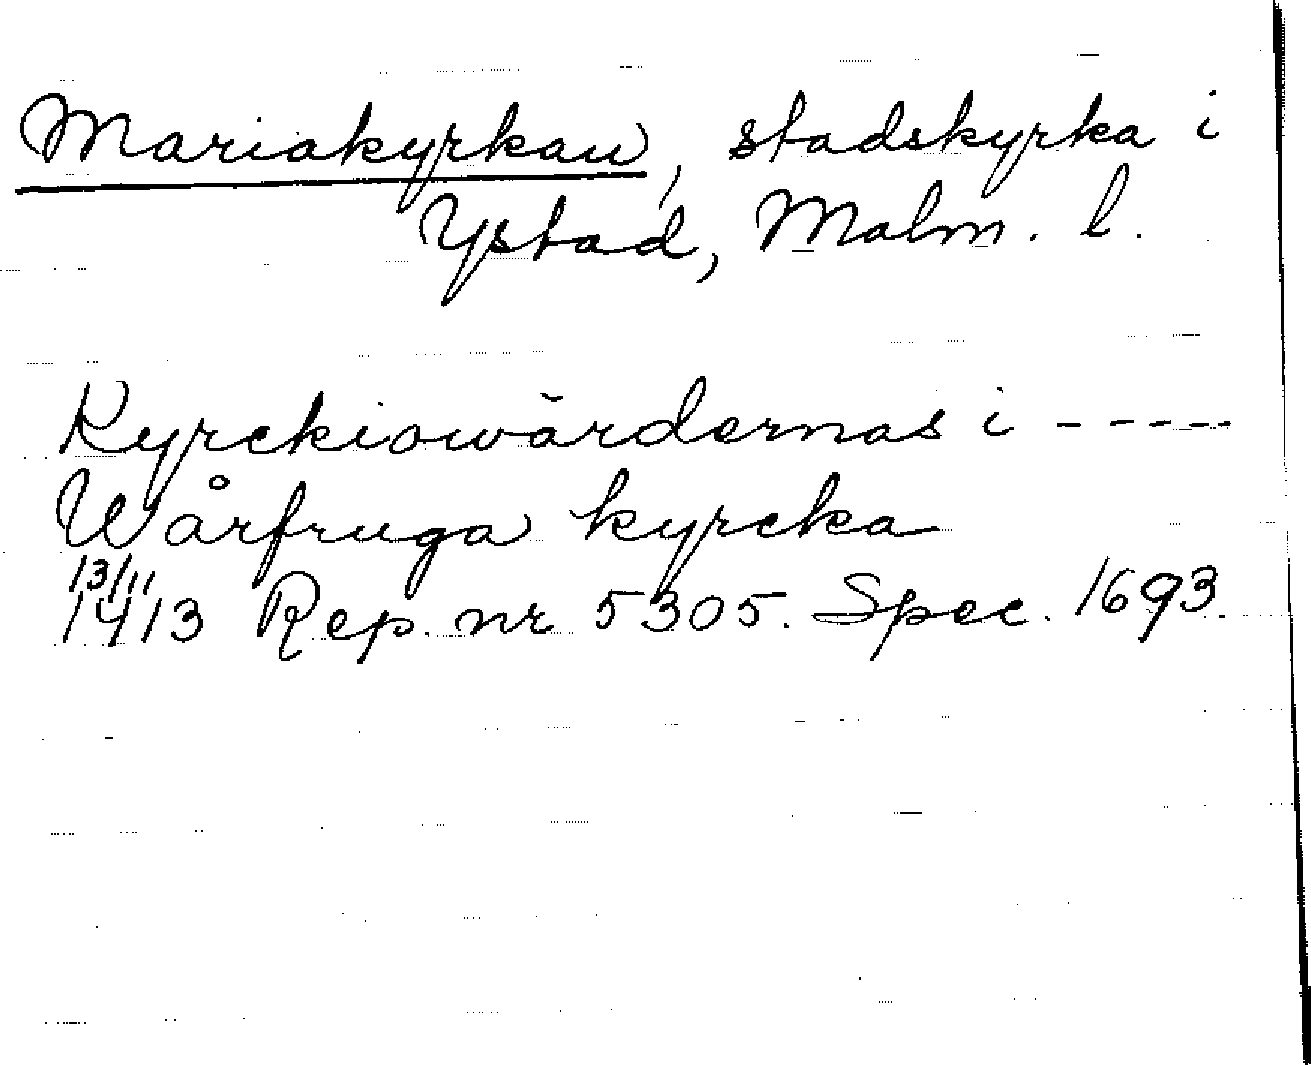 Mariakyrkan, stadskyrka i
Ystad, Malm. l.
Kyrckiowärdernas i -----
Wårfruga kyrcka
13/11
1413 Rep. nr 5305. Spec. 1693.